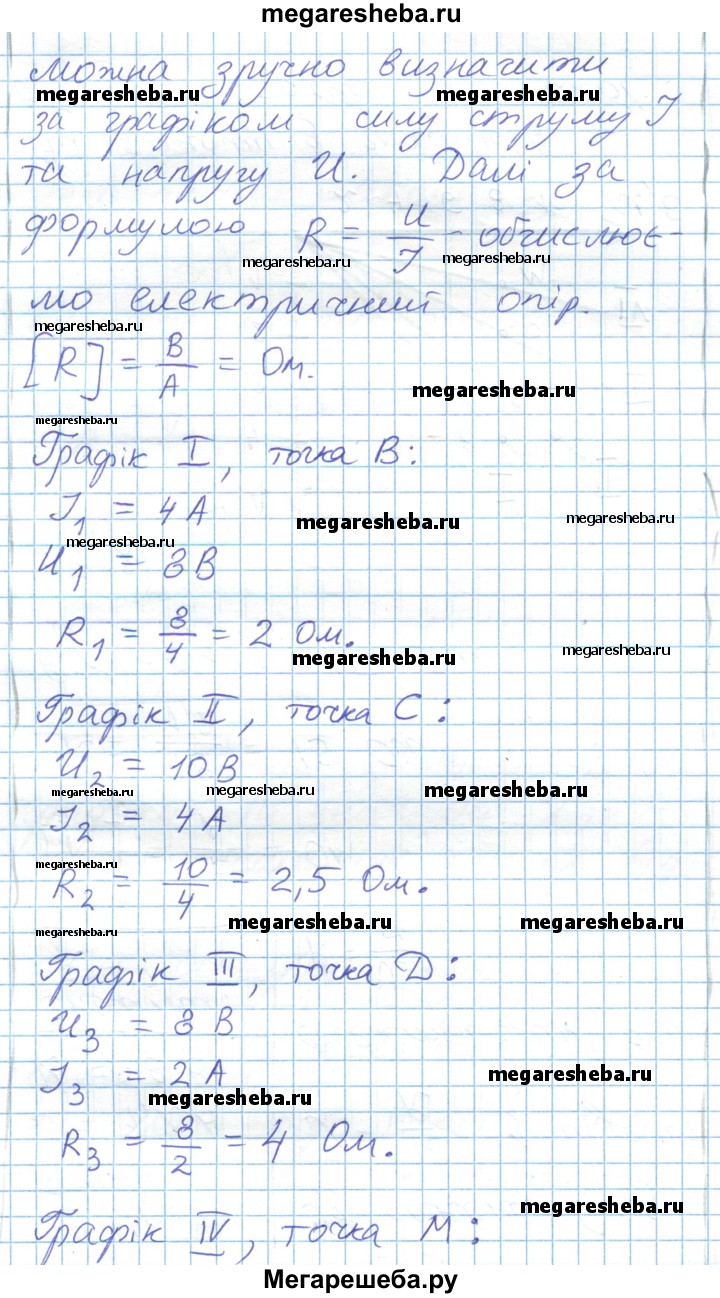 megaresheba.ru
можна зручно визначити
megaresheba.ru megaresheba.ru
за графіком силу струму I
та напругу U. Далі за
формулою R = U/I - обчислює-
megaresheba.ru megaresheba.ru
мо електричний опір.
megaresheba.ru
[R] = В/А = Ом.
megaresheba.ru
megaresheba.ru
Графік I, точка В:
I₁ = 4 А
megaresheba.ru megaresheba.ru
megaresheba.ru
U₁ = 8 В
R₁ = 8/4 = 2 Ом.
megaresheba.ru megaresheba.ru
Графік II, точка С:
U₂ = 10 В
megaresheba.ru megaresheba.ru megaresheba.ru
I₂ = 4 А
megaresheba.ru
R₂ = 10/4 = 2,5 Ом.
megaresheba.ru megaresheba.ru megaresheba.ru
Графік III, точка D:
U₃ = 8 В
I₃ = 2 А
megaresheba.ru
megaresheba.ru
R₃ = 8/2 = 4 Ом.
megaresheba.ru
Графік IV, точка М:
Мегарешеба.ру